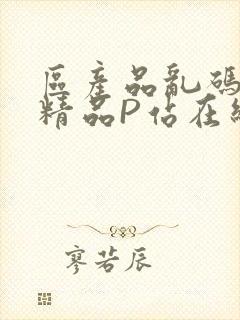 區產品乱碼
精品P佔在
寥若辰